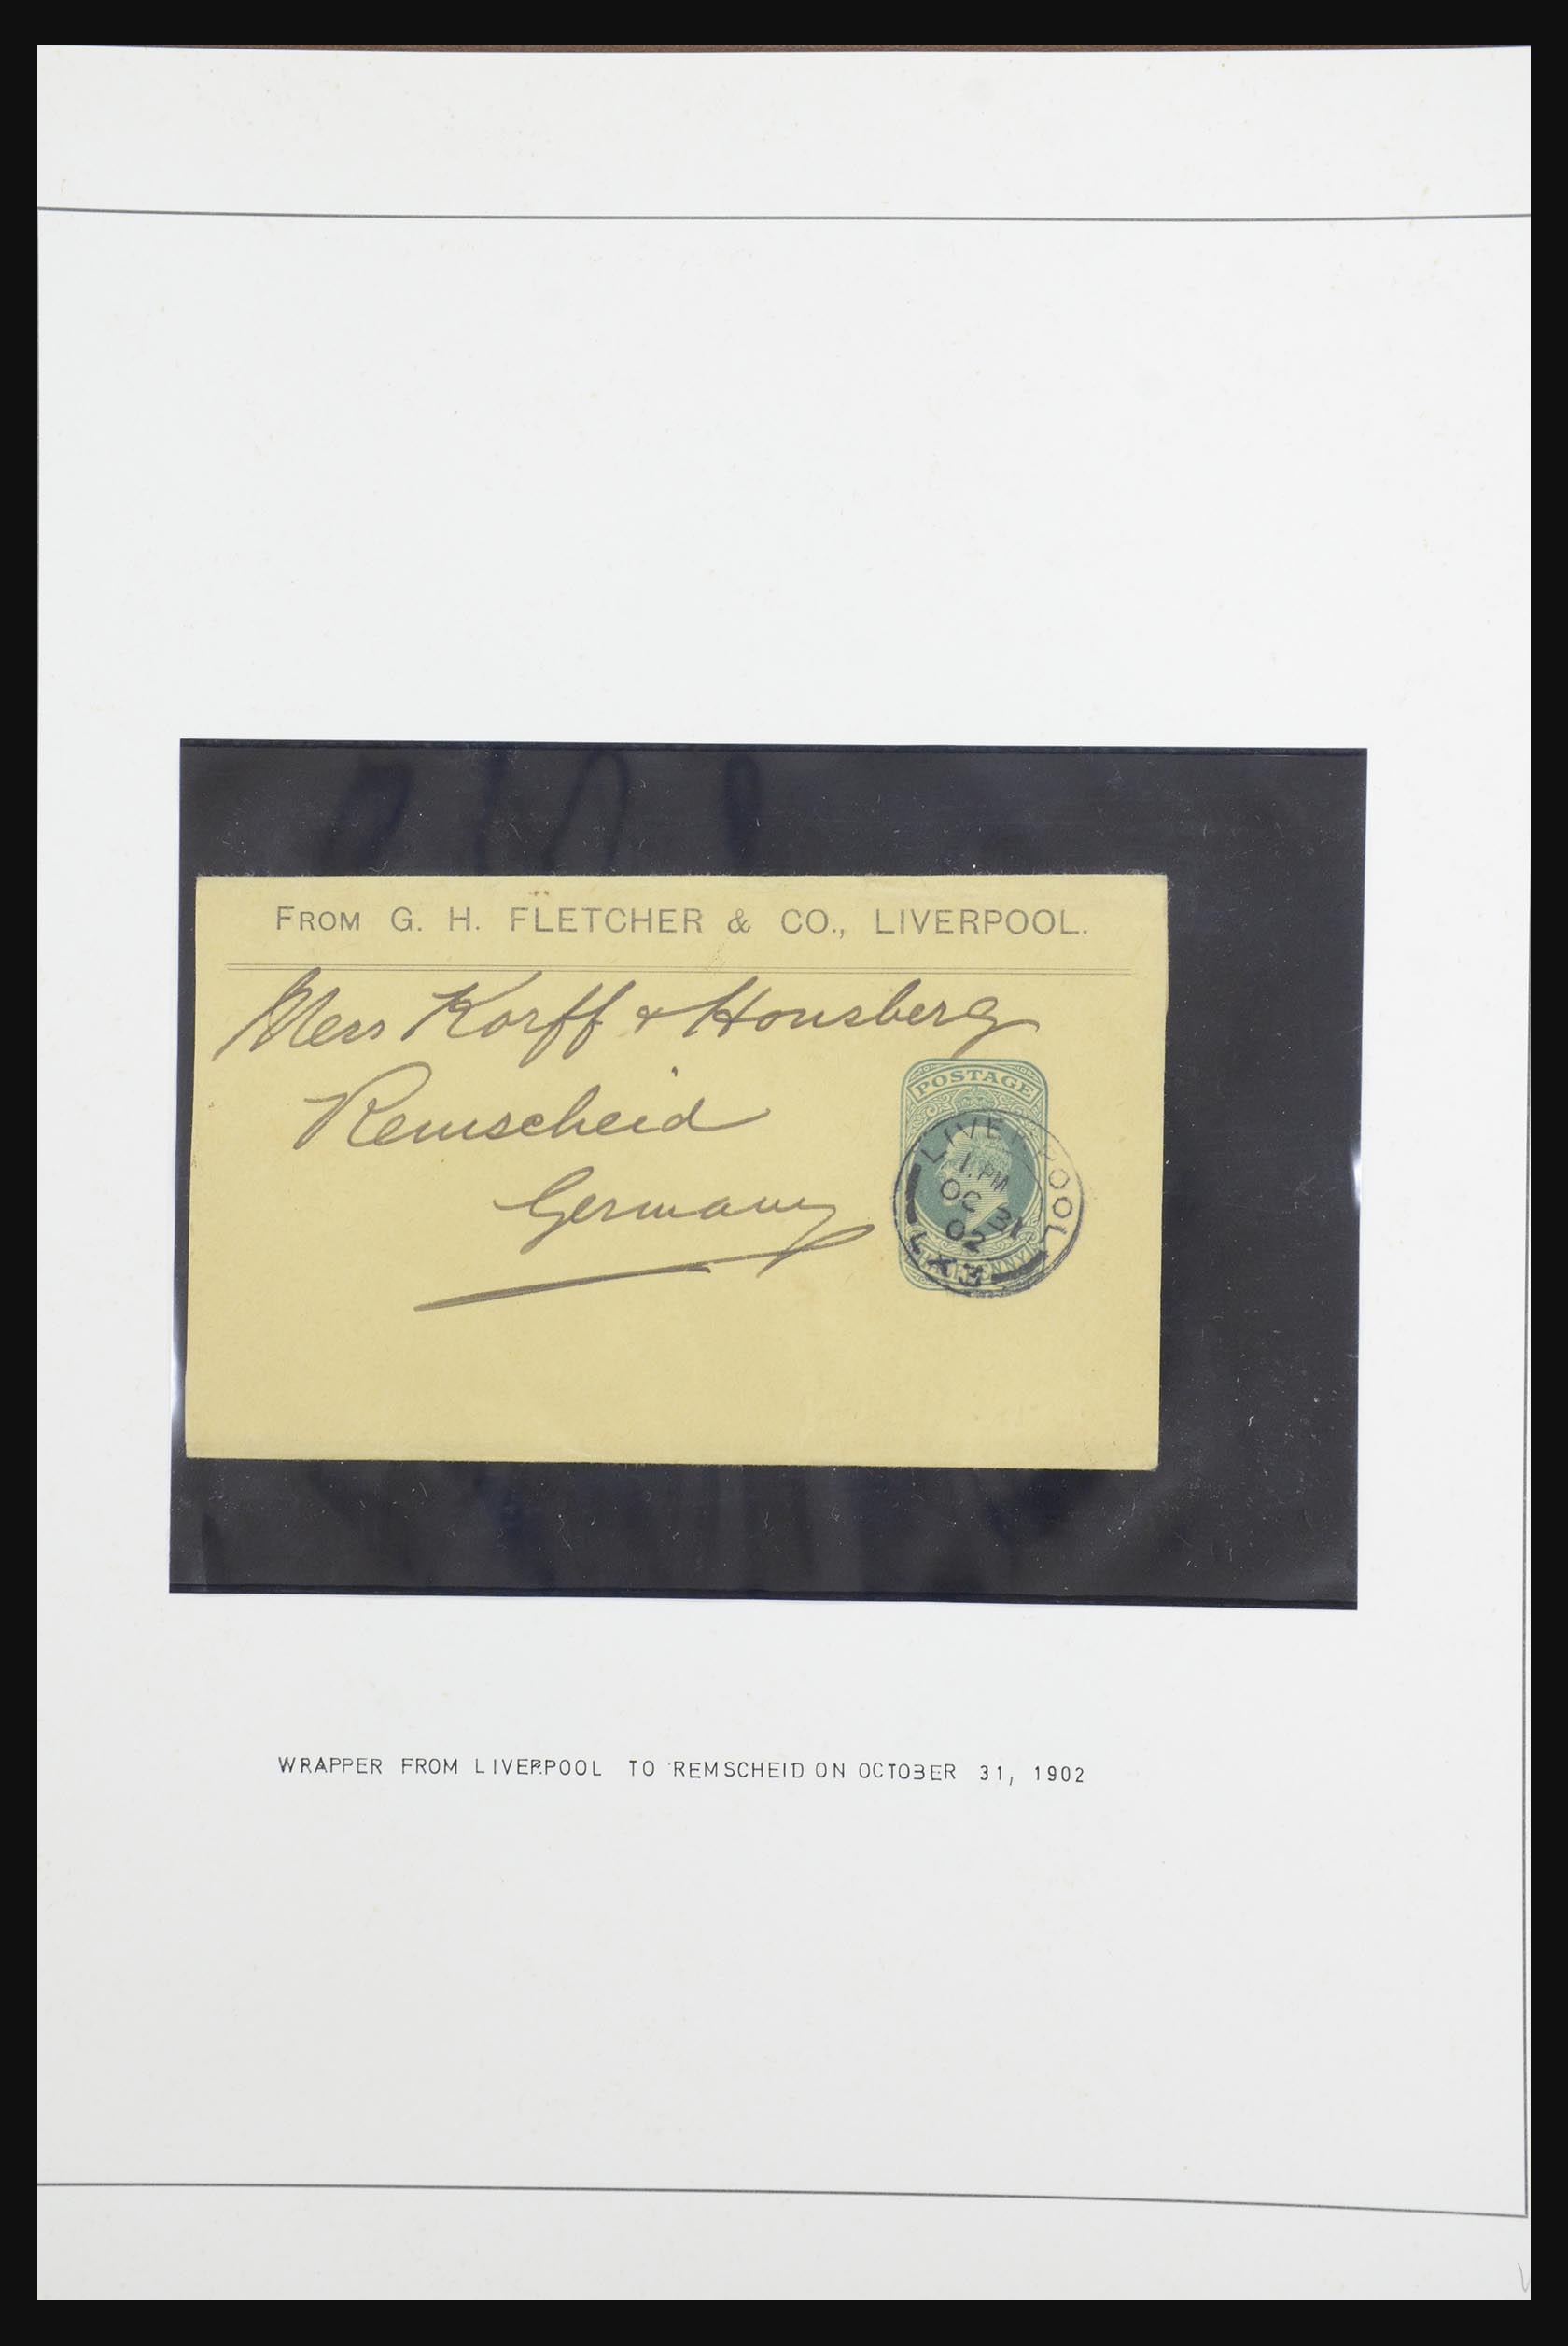 FROM G. H. FLETCHER & CO., LIVERPOOL.
Mess Korff & Honsberg
Remscheid
Germany
POSTAGE
HALFPENNY
LIVERPOOL
1.PM
OC 31
02
L X 3
WRAPPER FROM LIVERPOOL TO REMSCHEID ON OCTOBER 31, 1902